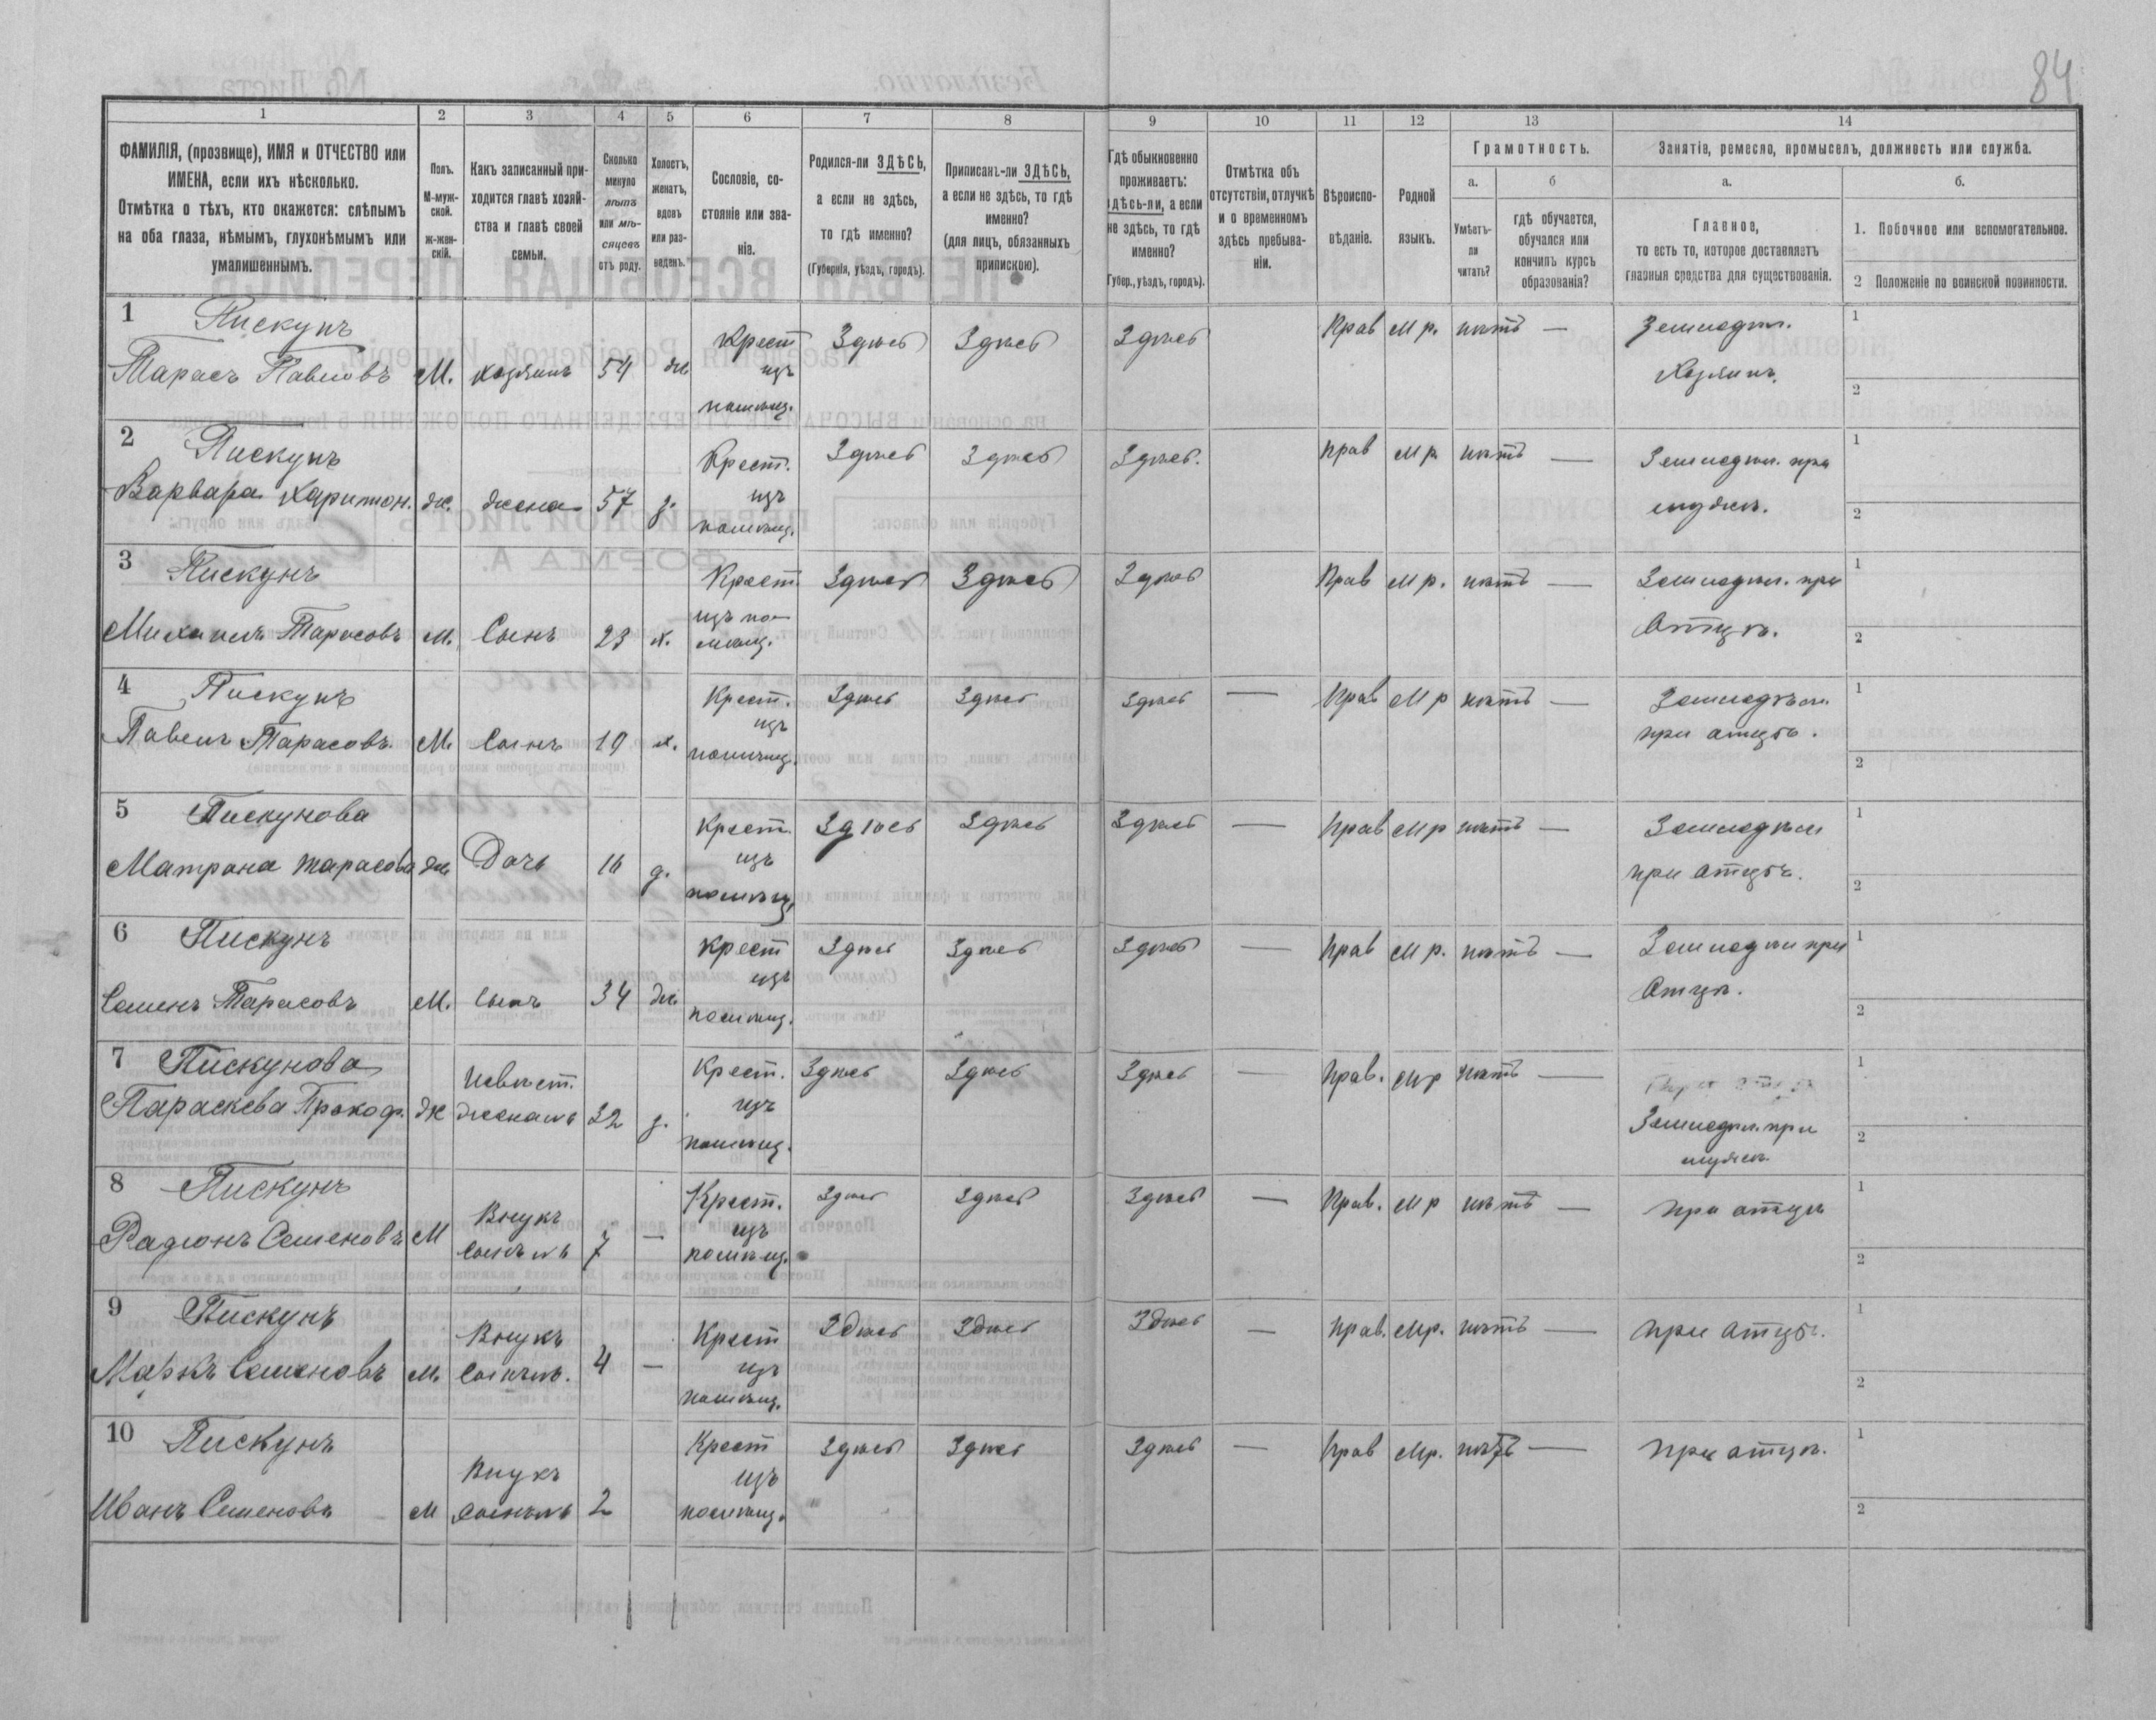 84
1 2 3 4 5 6 7 8 9 10 11 12 13 14
ФАМИЛІЯ, (прозвище), ИМЯ и ОТЧЕСТВО или
ИМЕНА, если ихъ нѣсколько.
Отмѣтка о тѣхъ, кто окажется: слѣпымъ
на оба глаза, нѣмымъ, глухонѣмымъ или
умалишеннымъ.
Полъ.
М-муж-
ской.
ж-жен-
скій.
Какъ записанный при-
ходится главѣ хозяй-
ства и главѣ своей
семьи.
Сколько
минуло
лѣтъ
или мѣ-
сяцевъ
отъ роду.
Холостъ,
женатъ,
вдовъ
или раз-
веденъ.
Сословіе, со-
стояніе или зва-
ніе.
Родился-ли ЗДѢСЬ,
а если не здѣсь,
то гдѣ именно?
(Губернія, уѣздъ, городъ).
Приписанъ-ли ЗДѢСЬ,
а если не здѣсь, то гдѣ
именно?
(для лицъ, обязанныхъ
припискою).
Гдѣ обыкновенно
проживаетъ:
здѣсь-ли, а если
не здѣсь, то гдѣ
именно?
Губер., уѣздъ, городъ).
Отмѣтка объ
отсутствіи, отлучкѣ
и о временномъ
здѣсь пребыва-
ніи.
Вѣроиспо-
вѣданіе.
Родной
языкъ.
Грамотность.
а.
Умѣетъ-
ли
читать?
б
гдѣ обучается,
обучался или
кончилъ курсъ
образованія?
Занятіе, ремесло, промыселъ, должность или служба.
а.
Главное,
то есть то, которое доставляетъ
главныя средства для существованія.
б.
1. Побочное или вспомогательное.
2 Положеніе по воинской повинности.
1 Пискунъ
Тарасъ Павловъ М. хозяинъ 54 ж
Крест
изъ
помѣщ.
Здѣсь Здѣсь Здѣсь Прав мр. нѣтъ —
Земледѣл.
Хозяинъ.
1
2
2 Пискунъ
Варвара Харитон. ж. жена 57 з.
Крест.
изъ
помѣщ.
Здѣсь Здѣсь Здѣсь. прав мр нѣтъ —
Земледѣл. при
мужѣ.
1
2
3 Пискунъ
Михаилъ Тарасовъ М. Сынъ 23 х.
Крест
изъ по-
мѣщ.
Здѣсь Здѣсь Здѣсь Прав мр. нѣтъ —
Земледѣл. при
Отцѣ.
1
2
4 Пискунъ
Павелъ Тарасовъ М. Сынъ 19 х.
Крест.
изъ
помѣщ.
Здѣсь Здѣсь Здѣсь — Прав мр нѣтъ —
Земледѣл.
при отцѣ.
1
2
5 Пискунова
Матрона Тарасова ж Дочь 16 д.
Крест.
изъ
помѣщ.
Здѣсь Здѣсь Здѣсь — прав мр нѣтъ —
Земледѣл
при отцѣ.
1
2
6 Пискунъ
Семенъ Тарасовъ М. Сынъ 34 ж.
Крест
изъ
помѣщ.
Здѣсь Здѣсь Здѣсь — прав мр. нѣтъ —
Земледѣл при
Отцѣ.
1
2
7 Пискунова
Параскева Прокоф. ж
Невѣст.
32 з.
Крест.
изъ
помѣщ.
Здѣсь Здѣсь Здѣсь — прав. мр нѣтъ —
Земледѣл. при
мужѣ
1
2
8 Пискунъ
Радіонъ Семеновъ М
Внукъ
7 —
Крест.
изъ
помѣщ.
Здѣсь Здѣсь Здѣсь — Прав. мр нѣтъ —
при отцѣ
1
2
9 Пискунъ
Маркъ Семеновъ М.
Внукъ
4 —
Крест
изъ
помѣщ.
Здѣсь Здѣсь Здѣсь — прав. мр. нѣтъ —
при отцѣ.
1
2
10 Пискунъ
Иванъ Семеновъ М
Внукъ
2
Крест
изъ
помѣщ.
Здѣсь Здѣсь Здѣсь — прав мр. нѣтъ —
при отцѣ.
1
2